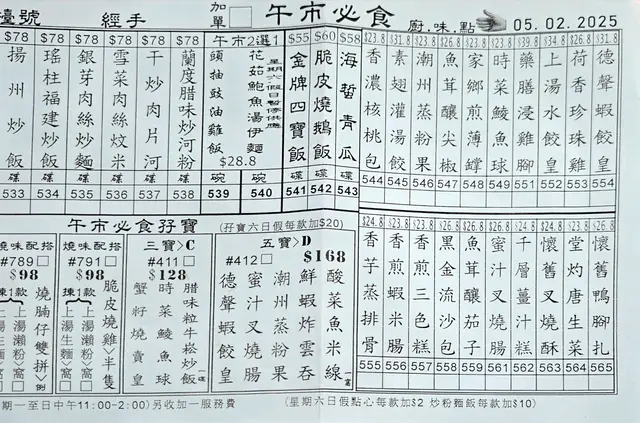 檯號 經手 加單 午市必食 廚.味.點 05.02.2025
$78 揚州炒飯 碟 533
$78 瑤柱福建炒飯 碟 534
$78 銀芽肉絲炒麵 碟 535
$78 雪菜肉絲炆米 碟 536
$78 干炒肉片河 碟 537
$78 蘭度腊味炒河粉 碟 538
午市2選1
頭抽豉油雞飯 碗 539
花茹鮑魚湯伊麵 碗 540
星期六假日暫停供應
$28.8
$55 金牌四寶飯 碟 541
$60 脆皮燒鵝飯 碟 542
$58 海蜇青瓜 碟 543
$23.8 香濃核桃包 544
$31.8 素翅灌湯餃 545
$23.8 潮州蒸粉果 546
魚茸釀尖椒 547
家鄉煎薄罉 548
時菜鯪魚球 549
藥膳浸腳 551
上湯水餃 552
$26.8 荷香珍珠雞 553
$31.8 德聲蝦餃皇 554
午市必食孖寶 (孖寶六日假每款加$20)
燒味配搭
#789
$98
揀1款
上湯生麵
上湯瀨粉
窩
燒腩仔雙拼 例
燒味配搭
#791
$98
揀1款
上湯生麵
上湯瀨粉
窩
脆皮燒雞 半隻
三寶>C
#411
$128
蟹籽燒賣皇
時菜鯪魚球
腊味粒牛崧炒飯 碟
五寶>D
#412
$168
德聲蝦餃皇
蜜汁叉燒腸
潮州蒸粉果
鮮蝦炸雲吞
酸菜魚米線 窩
$24.8 香芋蒸排骨 555
香煎蝦米腸 556
$23.8 香煎三色糕 557
$26.8 黑金流沙包 558
魚茸釀茄子 559
蜜汁叉燒腸 560
千層薑汁糕 561
懷舊叉燒酥 562
堂灼唐生菜 563
懷舊鴨腳扎 565
期一至日中午11:00-2:00) 另收加一服務費
(星期六日假點心每款加$2 炒粉麵飯每款加$10)